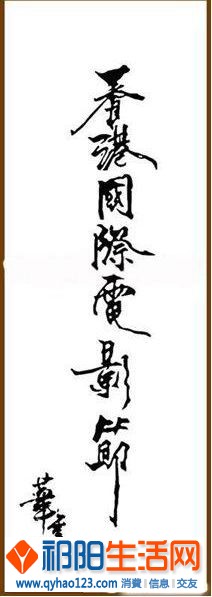 香港國際電影節
祁阳生活网
www.qyhao123.com 消費 | 信息 | 交友